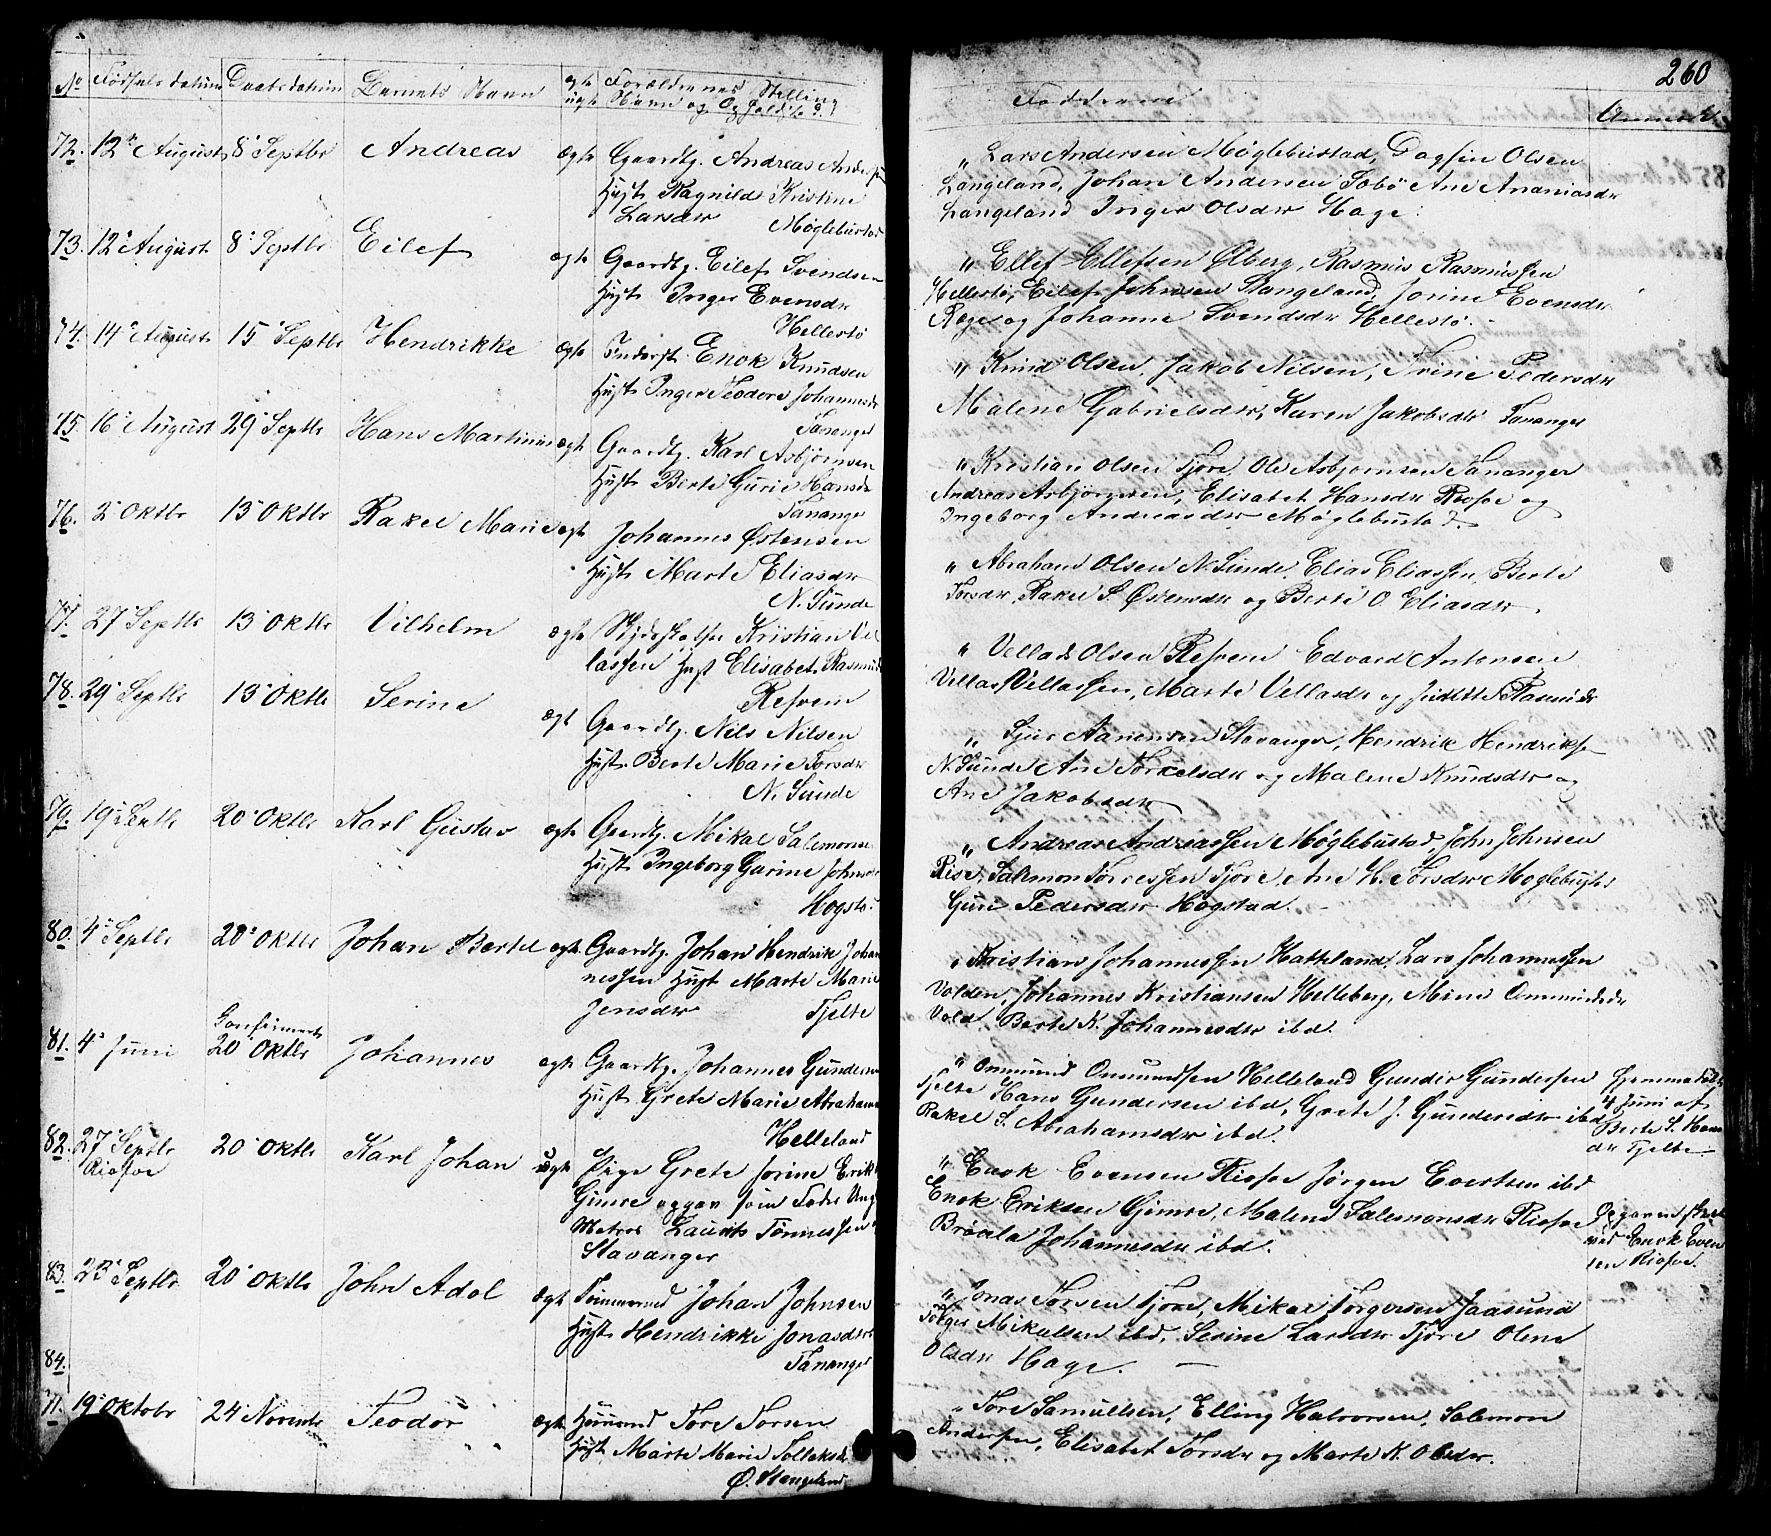 260
No Fødsels datum Daabs datum Barnets Navn ægte Forældrenes Stilling
uægte Navn og
Fadderne
72. 12te August 8de Septbr Andreas ægte Gaardbg. Andreas Andersen
Hust Ragnilde Kristine
Larsdr Møglebustad
„ Lars Andersen Møglebustad, Dagfin Olsen
Langeland, Johan Andersen Ane Ananiasdr
Langeland Inger Olsdr Hage.
73. 12te August 8de Septbr Eilef ægte Gaardbg. Eilef Svendsen
Hust Inger Evensdr
Hellestø
„ Ellef Ellefsen Ølberg, Rasmus Rasmussen
Hellestø, Eilef Johnsen Stangeland, Jorine Evensdr
Ræge og Johanne Svendsdr Hellestø.
74. 14de August 15de Septbr Hendrikke ægte Inderst Enok Knudsen
Hust Inger Teodore Johannesdr
Tananger
„ Knud Olsen, Jakob Nilsen, Trine Pedersdr
Malene Gabrielsdr, Karen Jakobsdr Tananger
75. 16de August 29de Septbr Hans Martinius ægte Gaardbg. Karl Asbjørnsen
Hust Berte Gurie Hansdr
Tananger
„ Kristian Olsen Tjore Ole Asbjørnsen Tananger
Andreas Asbjørnsen, Elisabet Hansdr Risfoe og
Ingeborg Andreasdr Møglebustad
76. 2de Oktbr 13de Oktbr Rakel Marie ægte Johannes Østensen
Hust Marte Eliasdr
N. Sunde
„ Abraham Olsen N. Sunde, Elias Eliassen, Berte
Torsdr, Rakel S. Østensdr og Berte O. Eliasdr.
77. 27de Septbr 13de Oktbr Vilhelm ægte Kristian Vel
lassen Hust Elisabet Rasmusdr
Resvem
„ Vellads Olsen Resvem Edvard Antonsen
Vellas Vellassen, Marte Vellasdr og Rasmusdr
78. 29de Septbr 13de Oktbr Serine ægte Gaardbg. Nils Nilsen
Hust. Berte Marie Torsdr
N. Sunde
„ Sjur Aanensen Stavanger, Hendrik Hendriks
N. Sunde Ane Torkelsdr og Malene Knudsdr og
Ane Jakobsdr
79. 19de Septbr 20de Oktbr Karl Gustav ægte Gaardbg. Mikal Salemonsen
Hust Ingeborg Garine Johnsdr
Høgstad
„ Andreas Andreassen Møglebustad, John Johnsen
Risa, Salemon Torressen Tjore, Ane H. Torsdr Møglebust
Guri Pedersdr Høgstad.
80. 4de Septbr 20de Oktbr Johan Bertel ægte Gaardbg. Johan Hendrik Johan
nessen Hust Marte Marie
Jensdr Tjelte
„ Kristian Johannessen Hatteland, Lars Johannessen
Volden, Johannes Kristiansen Helleberg, Mine Ommundsdr
Vold Berte K. Johannesdr ibd.
81. 4de Juni 20de Oktbr Johannes ægte Gaardbg. Johannes Gundersen
Hust Grete Marie Abrahamsdr
Helleland
„ Ommund Ommundsen Helleland Gunder Gundersen
Tjelte Hans Gundersen ibd, Grete J. Gundersdr ibd
Rakel S. Abrahamsdr ibd.
Hjemmedøbt
4 Juni af
Berte S. Hans
dr Tjelte
82. 27de Septbr 20de Oktbr Karl Johan uægte Pige Grete Jorine Eriks
Risfoe
Gimre opgav som Fader Ung
Matros Laurits Tønnessen
Stavanger
„ Enok Evensen Risfoe Jørgen Evertsen ibd
Enok Eriksen Gimre, Malene Salemonsdr Risfoe
Brøala Johannesdr ibd.
Opgaven
ved Enok Even
sen Risfoe.
83. 23de Septbr 20de Oktbr John Adol ægte Tømmermd Johan Johnsen
Hust Hendrikke Jonasdr
Tananger
„ Jonas Torsen Tjore, Mikal Torgersen Jaasund
Torger Mikalsen ibd, Serine Larsdr Tjore Olene
Olsdr Hage.
84.
71. 19de Oktobr 24de Novembr Teodor ægte Huusmd Tore Torsen
Hust Marte Marie Tollaksdr
Ø. Stangeland
„ Tore Samuelsen, Elling Halvorsen, Salemon
Andersen, Elisabet Torsdr og Marte K. Olsdr.